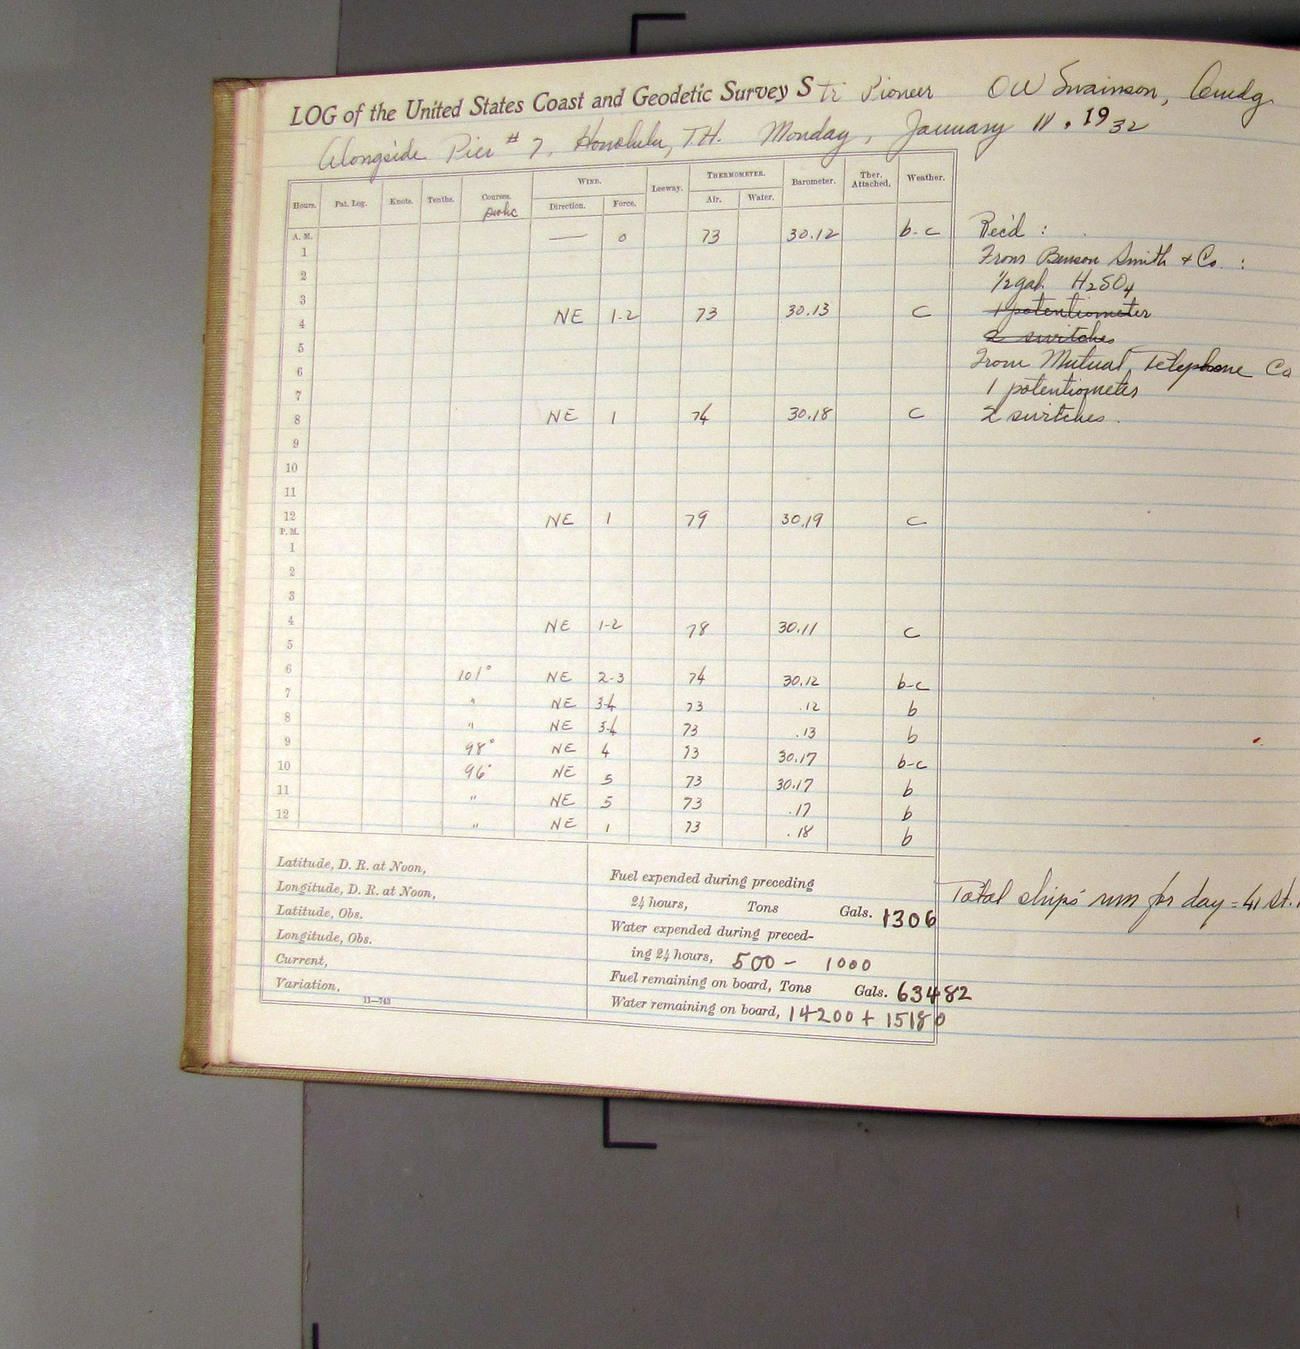 LOG of the United States Coast and Geodetic Survey Str Pioneer OW Swainson, Comdg
Alongside Pier # 7, Honolulu, T.H. Monday, January 11, 1932
Hours. Pat. Log. Knots. Tenths. Courses. WIND. Leeway. THERMOMETER. Barometer. Ther. Attached. Weather.
Direction. Force. Air. Water.
A. M. — 0 73 30.12 b-c
1
2
3
4 NE 1-2 73 30.13 c
5
6
7
8 NE 1 74 30.18 c
9
10
11
12 NE 1 79 30.19 c
P. M.
1
2
3
4 NE 1-2 78 30.11 c
5
6 101° NE 2-3 74 30.12 b-c
7 " NE 3-4 73 .12 b
8 " NE 3-4 73 .13 b
9 98° NE 4 73 30.17 b-c
10 96° NE 5 73 30.17 b
11 " NE 5 73 .17 b
12 " NE 1 73 .18 b
Rec'd :
From Benson Smith + Co. :
1/2 gal. H2SO4
1 potentiometer
2 switches
From Mutual Telephone Co
1 potentiometer
2 switches.
Latitude, D. R. at Noon,
Longitude, D. R. at Noon,
Latitude, Obs.
Longitude, Obs.
Current,
Variation,
11—743
Fuel expended during preceding
24 hours, Tons Gals. 1306
Water expended during preced-
ing 24 hours, 500 - 1000
Fuel remaining on board, Tons Gals. 63482
Water remaining on board, 14200 + 15180
Total ships' run for day = 41 St.